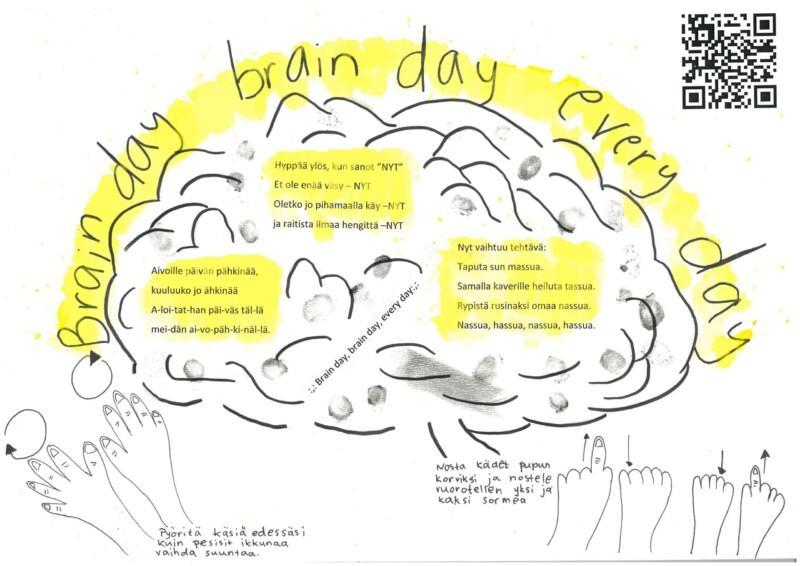 Brain day brain day every day
Hyppää ylös, kun sanot "NYT"
Et ole enää väsy – NYT
Oletko jo pihamaalla käy –NYT
ja raitista ilmaa hengittä –NYT
Aivoille päivän pähkinää,
kuuluuko jo ähkinää
A-loi-tat-han päi-väs täl-lä
mei-dän ai-vo-päh-ki-näl-lä.
Nyt vaihtuu tehtävä:
Taputa sun massua.
Samalla kaverille heiluta tassua.
Rypistä rusinaksi omaa nassua.
Nassua, hassua, nassua, hassua.
;,: Brain day, brain day, every day:,;
Nosta kädet pupun
korviksi ja nostele
vuorotellen yksi ja
kaksi sormea
Pyöritä käsiä edessäsi
kuin pesisit ikkunaa
vaihda suuntaa.